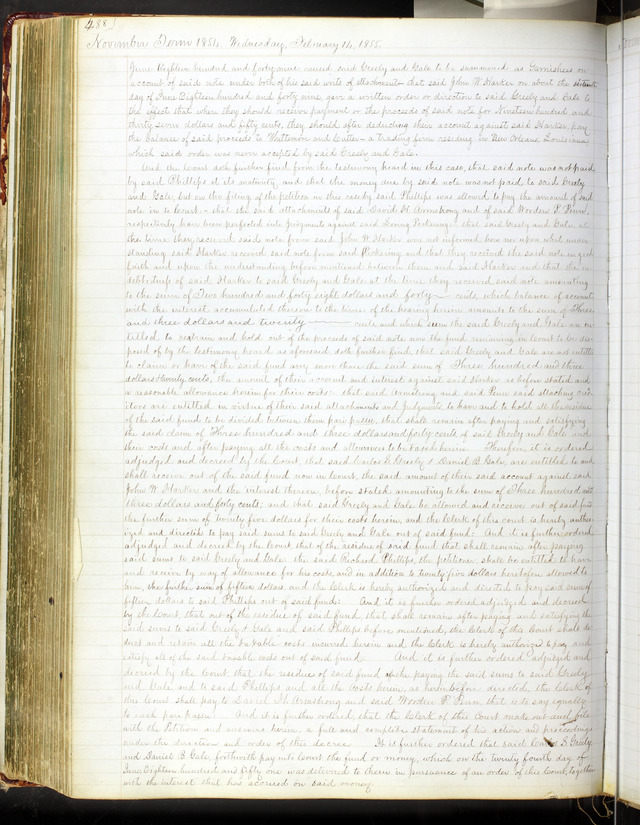 488
November Term 1854, Wednesday, February 14, 1855.
June Eighteen hundred and forty nine caused said Greely and Gale to be summoned as Garnishees on
account of said note under both of his said writs of attachment – that said John W. Harker on about the
day of June Eighteen hundred and forty nine gave a written order or direction to said Greely and Gale to
the effect that when they should receive payment or the proceeds of said note for Nineteen hundred and
thirty seven dollars and fifty cents, they should after deducting their account against said Harker, pay
the balance of said proceeds to and – a trading firm residing in New Orleans Louisiana
which said order was never accepted by said Greely and Gale.
And the Court doth further find from the testimony heard in this case, that said note was not paid
by said Phillips at its maturity, and that the money due by said note was not paid to said Greely
and Gale, but on the filing of the petition in this case by said Phillips was allowed to pay the amount of said
note in to Court – that the said attachments of said David H. Armstrong and of said Worden P. Penn,
respectively have been perfected into Judgments against said Loring Pickering – that said Greely and Gale at
the time they received said note from said John W. Harker was not informed how nor upon what under-
standing said Harker received said note from said Pickering and that they received the said note in good
faith and upon the understanding before mentioned between them and said Harker and that the in-
debtedness of said Harker to said Greely and Gale at the time they received said note amounting
to the sum of Two hundred and forty eight dollars and forty cents, which balance of account
with the interest accumulated thereon to the time of the hearing herein amounts to the sum of Three
and three dollars and twenty cents and which sum the said Greely and Gale are en-
titled to retain and hold out of the proceeds of said note now the fund remaining in Court to be dis-
posed of by the testimony heard as aforesaid doth further find, that said Greely and Gale are not entitled
to claim or have of the said fund any more than the said sum of Three hundred and three
dollars & twenty cents, the amount of their account and interest against said Harker as before stated and
a reasonable allowance herein for their costs: that said Armstrong and said Penn said attaching cred-
itors are entitled in virtue of their said attachments and Judgments to have and to hold all the residue
of the said fund to be divided between them pari passu, that shall remain after paying and satisfying
the said claim of Three hundred and three dollars and forty cents of said Greely and Gale and
their costs and after paying all the costs and allowances to be taxed herein. Therefore it is ordered
adjudged and decreed by the Court, that said Carlos S. Greely & Daniel B. Gale, are entitled to and
shall receive out of the said fund now in Court, the said amount of their said account against said
John W. Harker and the interest thereon, before stated amounting to the sum of Three hundred and
three dollars and forty cents; and that said Greely and Gale be allowed and receive out of said fund
the further sum of twenty five dollars for their costs herein, and the Clerk of this Court is hereby author-
ized and directed to pay said sums to said Greely and Gale out of said fund: And it is further ordered
adjudged and decreed by the Court that of the residue of said fund that shall remain after paying
said sums to said Greely and Gale the said Richard Phillips, the petitioner, shall be entitled to have
and receive by way of allowance for his costs and in addition to twenty five dollars heretofore allowed to
him, the further sum of fifteen dollars and the Clerk is hereby authorized and directed to pay said sum of
fifteen dollars to said Phillips out of said fund: And it is further ordered adjudged and decreed
by the Court, that out of the residue of said fund that shall remain after paying and satisfying the
said sums to said Greely & Gale and said Phillips before mentioned, the Clerk of this Court shall de-
duct and retain all the taxable costs incurred herein and the Clerk is hereby authorized to pay and
satisfy all of the said taxable costs out of said fund. And it is further ordered adjudged and
decreed by the Court that the residue of said fund after the paying the said sums to said Greely
and Gale and to said Phillips and all the costs herein, as hereinbefore directed, the Clerk of
this Court shall pay to David H. Armstrong and said Worden P. Penn that is to say equally
to each pari passu. And it is further ordered, that the Clerk of this Court make out and file
with the Petition and answers herein, a full and complete statement of his action and proceedings
under the direction and order of this decree. It is further ordered that said Carlos S. Greely
and Daniel B. Gale, forthwith pay into Court the fund or money, which on the twenty fourth day of
June Eighteen hundred and fifty one was delivered to them in pursuance of an order of this Court, together
with the interest that has accrued on said money.